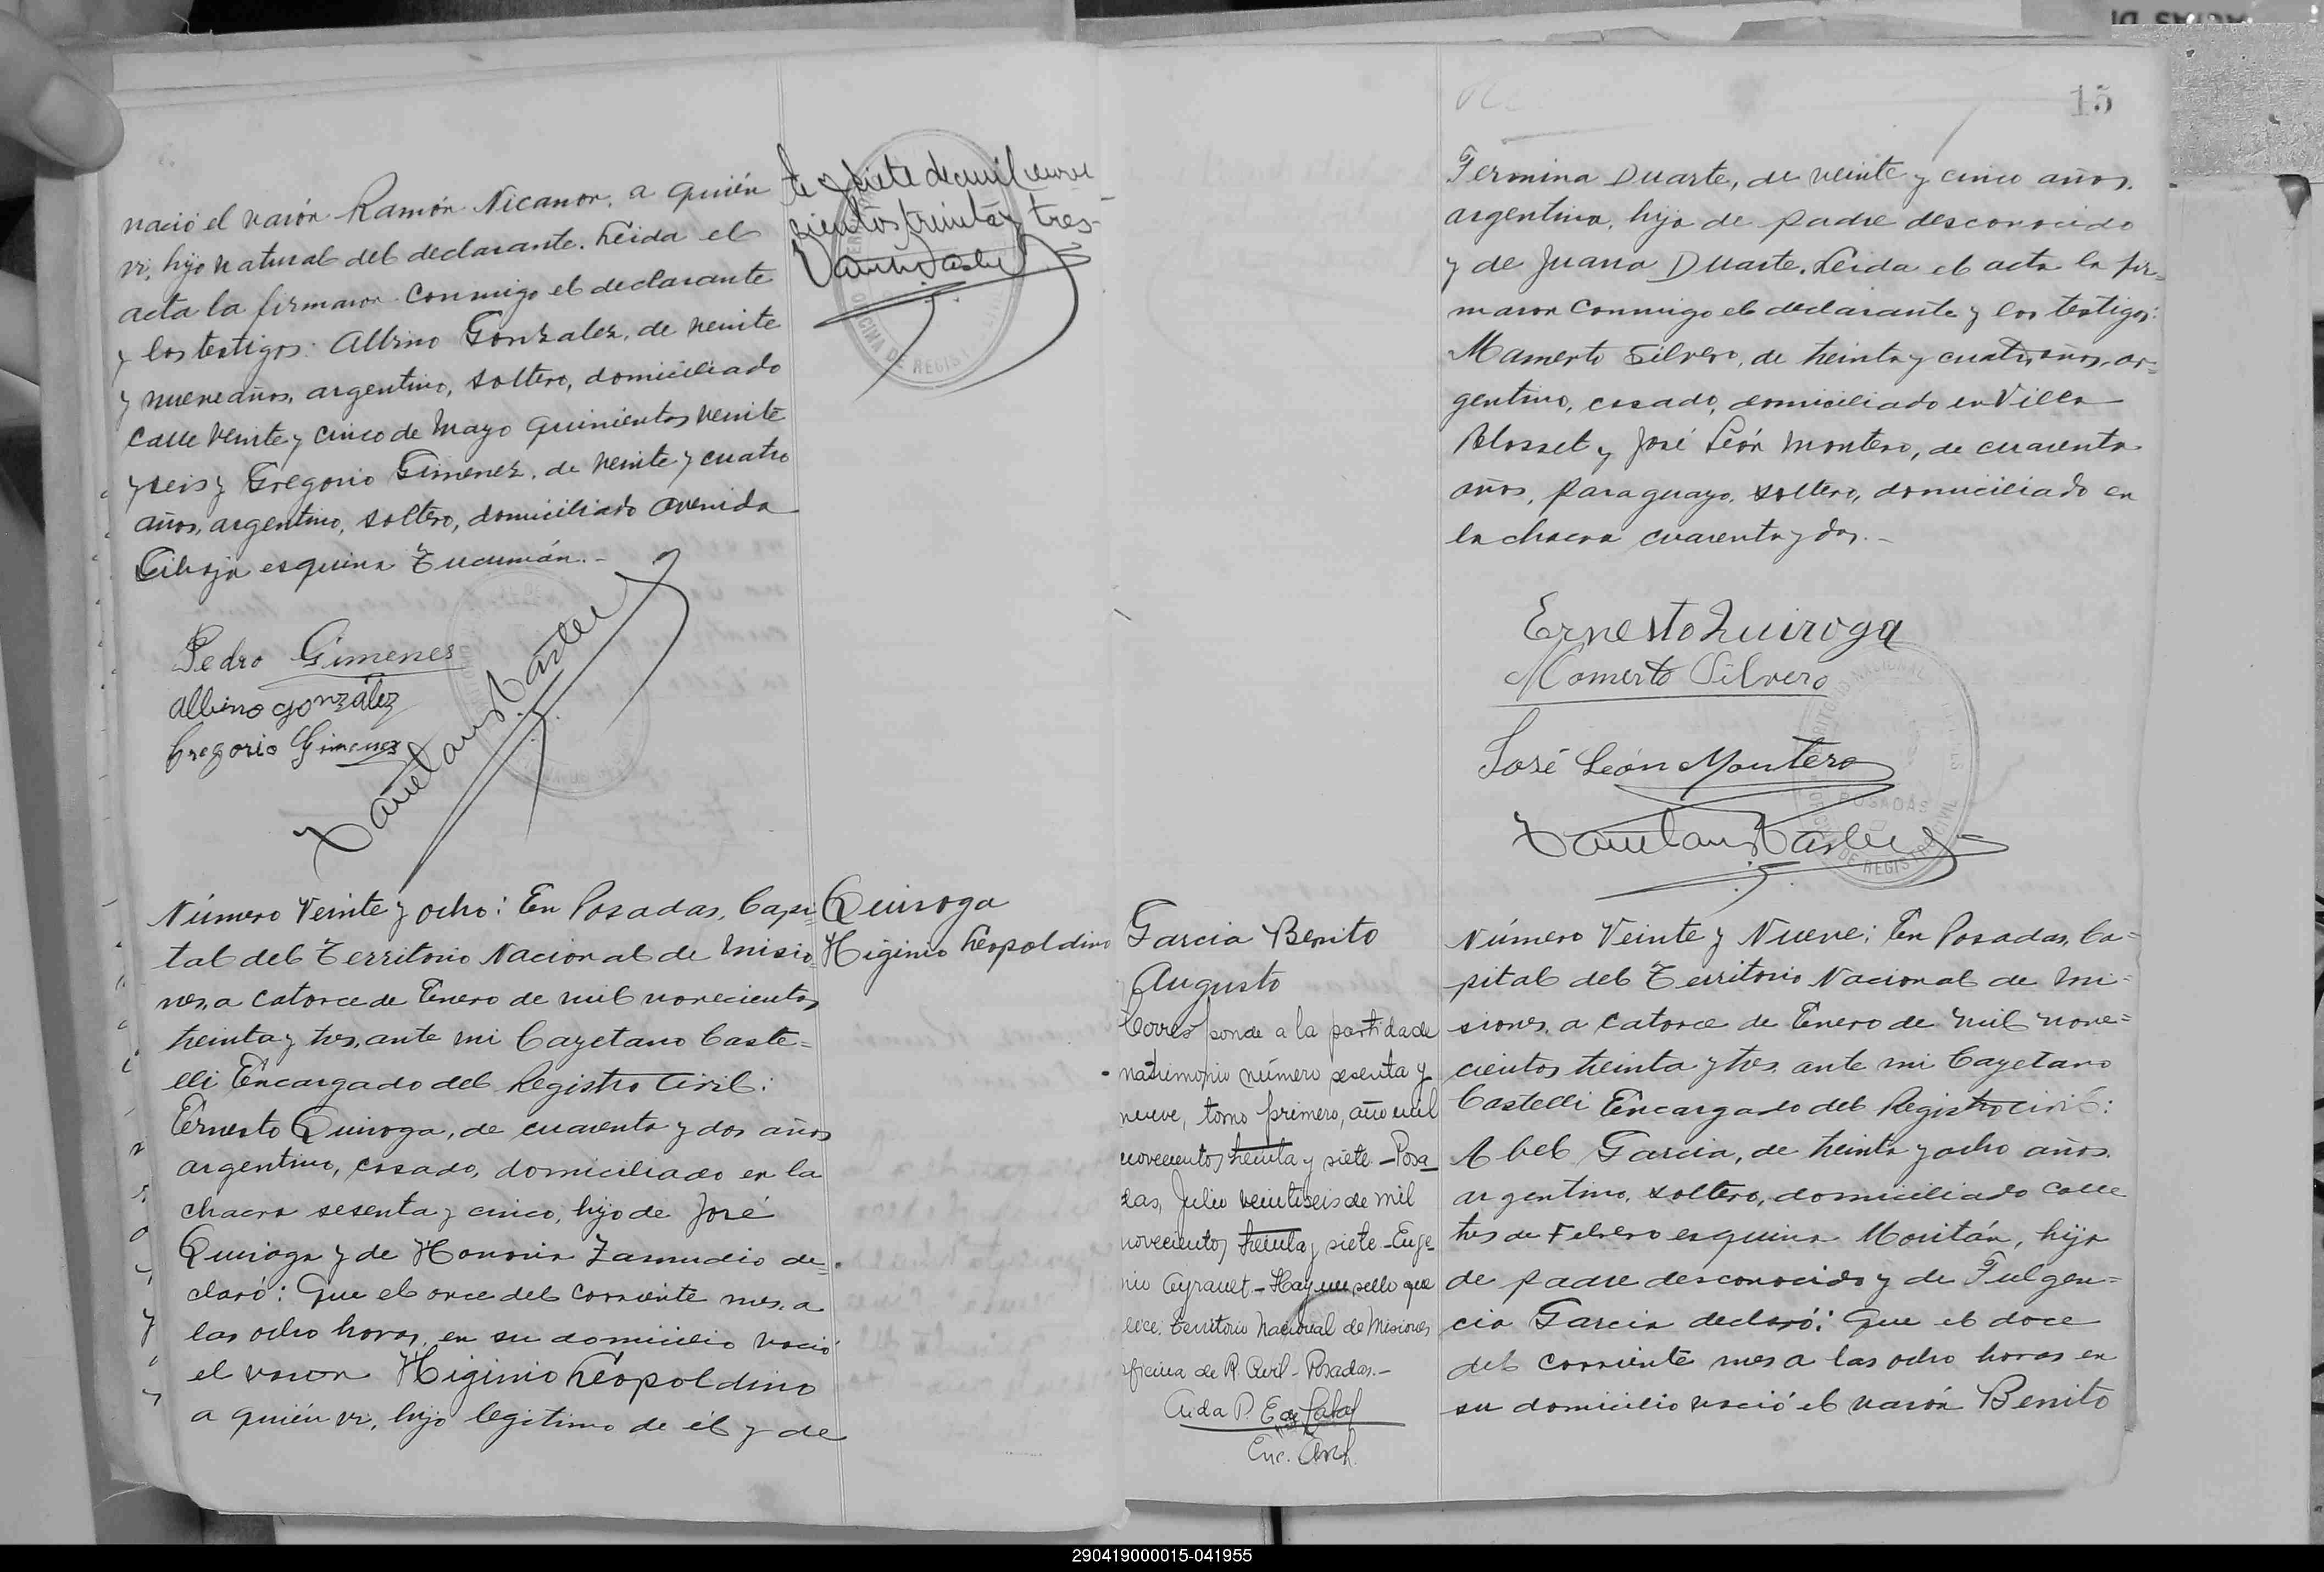 nació el varón Ramón Nicanor, a quién
vi, hijo natural del declarante. Leida el
acta la firmaron conmigo el declarante
y los testigos: Albino Gonzalez, de veinte
y nueve años, argentino, soltero, domiciliado
calle Veinte y cinco de Mayo quinientos veinte
y seis y Gregorio Gimenez, de veinte y cuatro
años, argentino, soltero, domiciliado avenida
esquina Tucumán.-
Pedro Gimenes
Albino González
Gregorio Gimenez
te y siete de mil nove
cientos treinta y tres-
Número Veinte y ocho: En Posadas, Capi-
tal del Territorio Nacional de Misio-
nes, a catorce de Enero de mil novecientos
treinta y tres, ante mi Cayetano Caste=
lli Encargado del Registro Civil:
Ernesto Quiroga, de cuarenta y dos años
argentino, casado, domiciliado en la
chacra sesenta y cinco, hijo de José
Quiroga y de Honoria Zamudio de=
claró: Que el once del corriente mes, a
las ocho horas, en su domicilio nació
el varon Higinio Leopoldino
a quién vi, hijo legitimo de él y de
Quiroga
Higinio Leopoldino
15
Fermina Duarte, de veinte y cinco años,
argentina, hija de padre desconocido
y de Juana Duarte. Leida el acta la fir=
maron conmigo el declarante y los testigos:
Mamerto Silvero, de treinta y cuatro años, ar=
gentino, casado, domiciliado en Villa
Blosset y José León Montero, de cuarenta
años, paraguayo, soltero, domiciliado en
la chacra cuarenta y dos.-
Ernesto Quiroga
Mamerto Silvero
José León Montero
POSADAS
Garcia Benito
Augusto
Corresponde a la partida de
matrimonio número sesenta y
nueve, tomo primero, año mil
novecientos treinta y siete - Posa
das, Julio veintiseis de mil
novecientos treinta y siete - Euge
nio Ayrault - Hay un sello que
dice. Territorio Nacional de Misiones
oficina de R. Civil - Posadas.-
Aida P. E de
Enc. Arch.
Número Veinte y Nueve: En Posadas, Ca=
pital del Territorio Nacional de Mi=
siones, a catorce de Enero de mil nove=
cientos treinta y tres, ante mi Cayetano
Castelli Encargado del Registro Civil:
Abel Garcia, de treinta y ocho años,
argentino, soltero, domiciliado calle
tres de Febrero esquina Moritán, hijo
de padre desconocido y de Fulgen=
cia Garcia declaró: Que el doce
del corriente mes a las ocho horas en
su domicilio nació el varón Benito
290419000015-041955